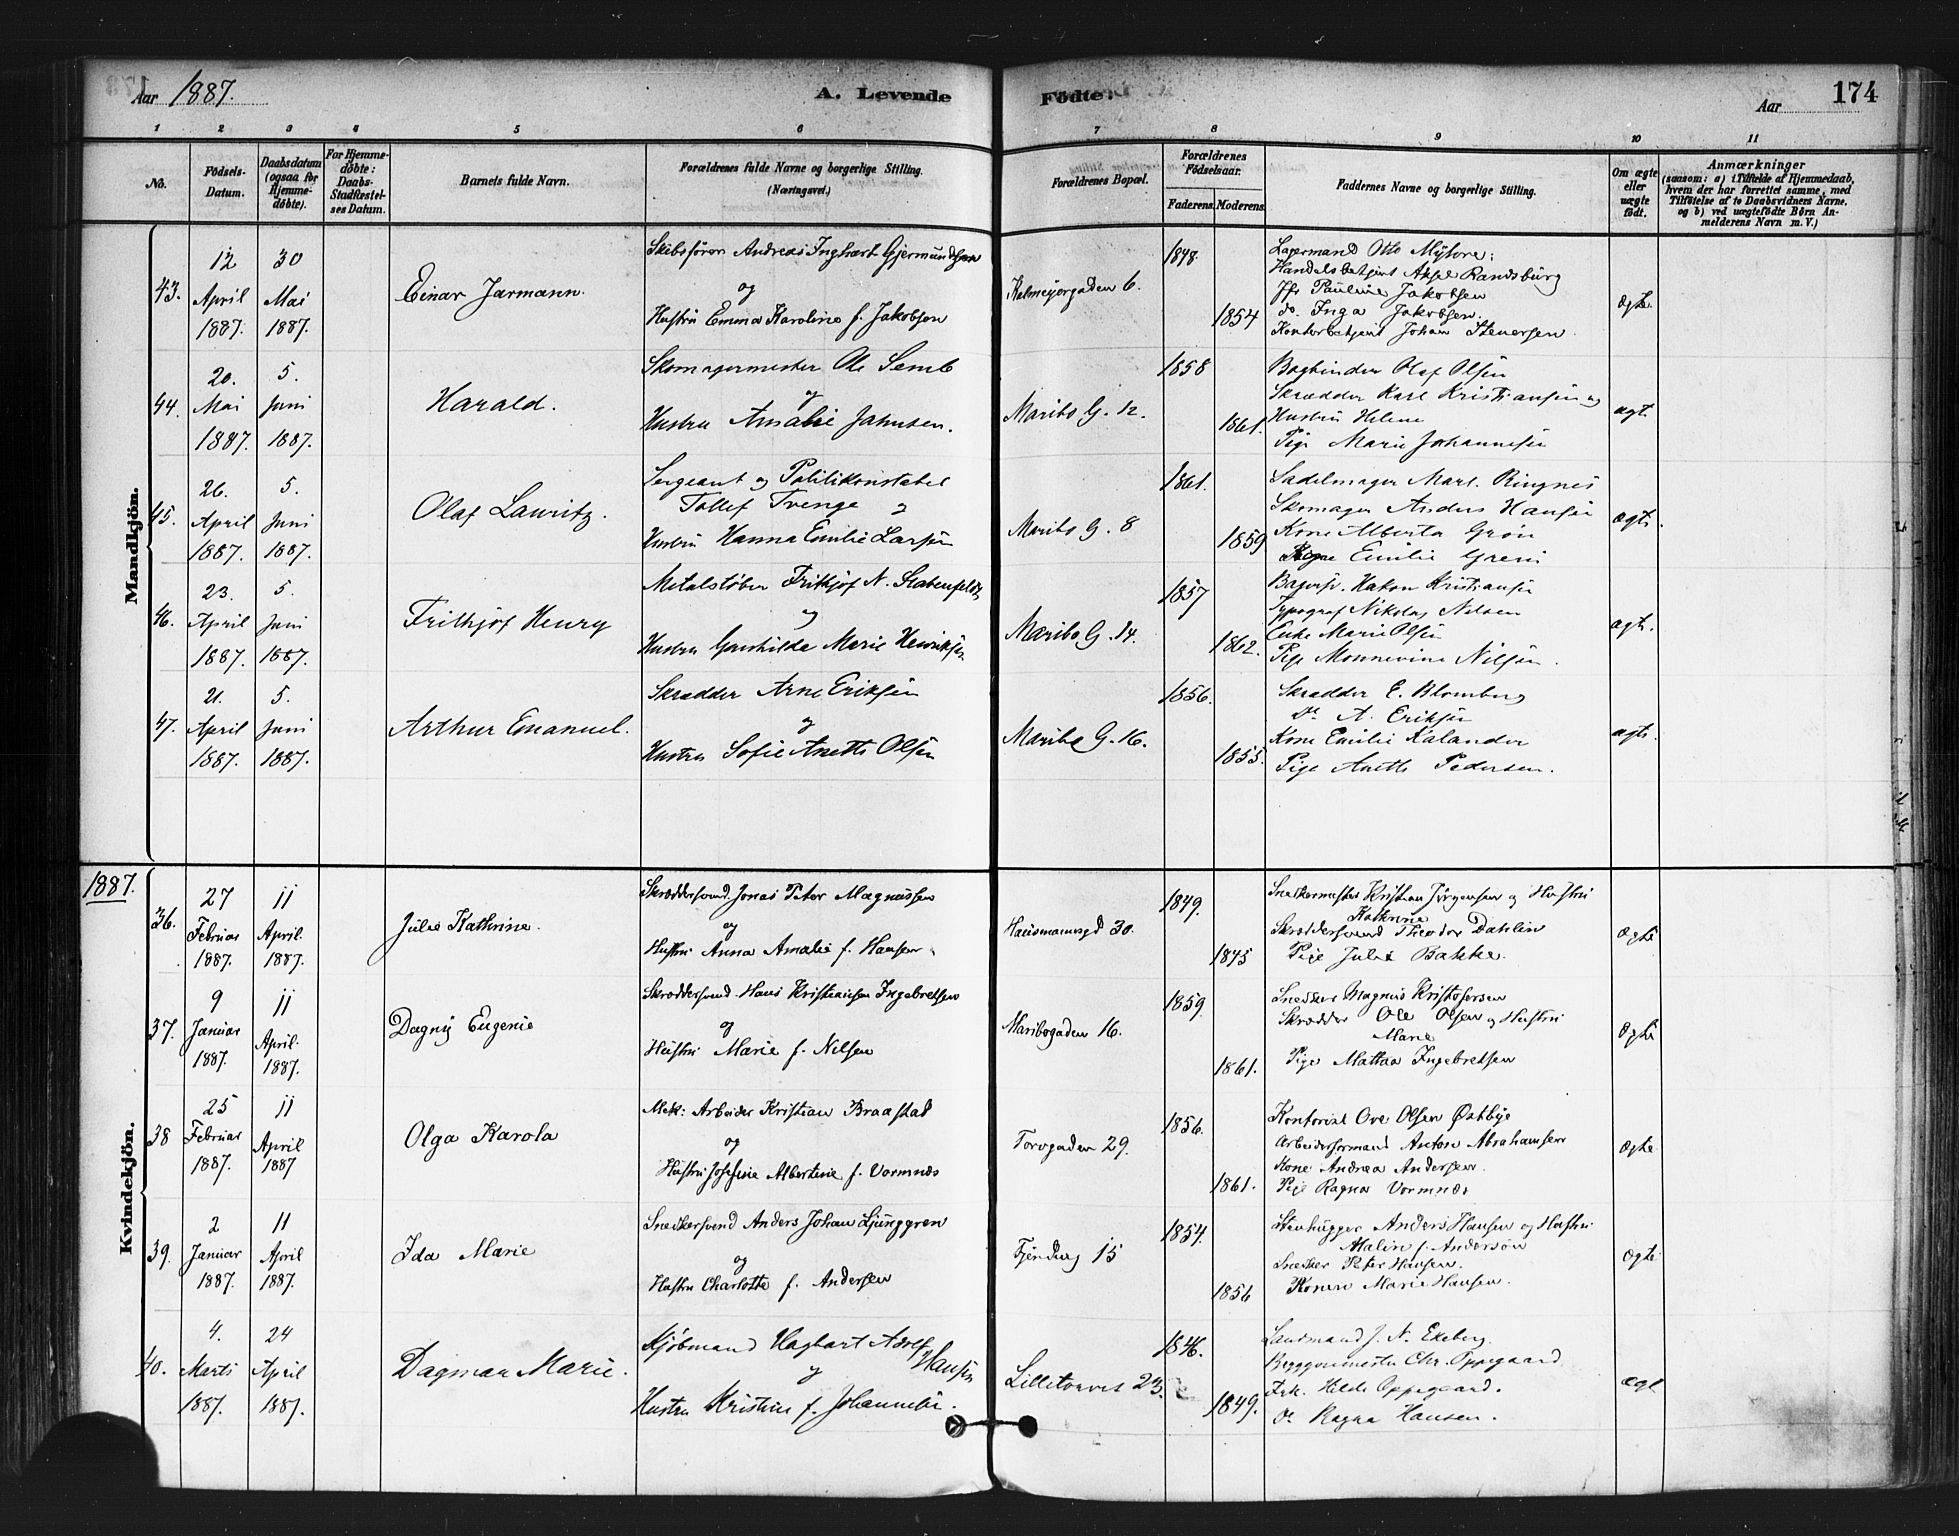 Aar 1887.
A. Levende
Fødte.
Aar
174
1 2 3 4 5 6 7 8 9 10 11
No.
Fødsels-
Datum.
Daabsdatum
(ogsaa for
Hjemme-
døbte).
For Hjemme-
døbte:
Daabs-
Stadfæstel-
ses Datum.
Barnets fulde Navn.
Forældrenes fulde Navne og borgerlige Stilling.
(Næringsvei.)
Forældrenes Bopæl.
Forældrenes
Fødselsaar.
Faderens. Moderens.
Faddernes Navne og borgerlige Stilling.
Om ægte
eller
uægte
født.
Anmærkninger
(saasom: a) i Tilfælde af Hjemmedaab,
hvem der har forrettet samme, med
Tilføielse af to Daabsvidners Navne.
og b) ved uægtefødte Børn An-
melderens Navn m. V.)
Mandkjön.
43.
12 April 1887.
30 Mai 1887.
Einar Jarmann.
Skibsfører Andreas Inghart Gjermundsen
og
Hustru Emma Karoline f. Jakobsen
Kalmeyergaden 6.
1848.
1854
Lagermand Otto
Handelsbetjent Aksel Randsburg
Jfr Pauline Jakobsen
do. Inga Jakobsen.
Kontorbetjent Johan Stenersen.
ægte
44.
20. Mai 1887.
5. Juni 1887.
Harald.
Skomagermester Ole Semb
og
Hustru Amalie Jahnsen.
Maribo G. 12.
1858
1861.
Bogbinder Olaf Olsen
Skrædder Karl Kristiansen og
Hustru Helene
Pige Marie Johannesen
ægt.
45.
26. April 1887.
5. Juni 1887.
Olaf Lauritz.
Sergeant og Politikonstabel
Tollef Tvenge og
Hustru Hanna Emilie Larsen
Maribo G. 8
1861.
1859
Sadelmager Mart. Ringnes
Skomager Anders Hansen
Kone Alberta Grøn
Emilie
ægte.
46.
23. April 1887.
5. Juni 1887.
Frithjof Henry
Metalstøber Frithjof N. Stabenfeldt
og
Hustru Gunhilde Marie Henriksen
Maribo G. 14.
1857
1862.
Bagersv. Hakon Kristiansen
Typograf Nikolay Nilsen
Enke Marie Olsen
Pige Monnevine Nilsen.
ægte.
47.
21. April 1887.
5. Juni 1887.
Arthur Emanuel.
Skrædder Arne Eriksen
og
Hustru Sofie Anette Olsen
Maribo G. 16.
1856.
1855.
Skrædder E. Blomberg
Do A. Eriksen
Kone Emilie Kalander
Pige Anette Pedersen.
ægte.
1887.
Kvindekjön.
36.
27 Februar 1887.
11 April. 1887.
Julie Kathrine.
Skræddersvend Jonas Peter Magnussen
og
Hustru Anna Amalie f. Hansen
Hausmannsgd 30.
1849.
1845
Snedkermester Kristian Jörgensen og Hustru
Kathrine
Skræddersvend Theodor Dahlin
Pige Julie Bakke.
Ægte
37.
9 Januar 1887.
11 April. 1887.
Dagny Eugenie
Skræddersvend Hans Kristiansen Ingebretsen
og
Hustru Marie f. Nilsen
Maribogaden 16.
1859.
1861.
Snedker Magnus Kristofersen
Skrædder Ole Olsen og Hustru
Marie
Pige Mathea Ingebretsen
Ægte
38
25 Februar 1887.
11 April 1887
Olga Karola
Mek: Arbeider Kristian Braastad
og
Hustru Josefine Albertine f. Vormnæs
Torvgaden 29.
1856.
1861.
Kontorist Ove Olsen Østbye
Arbeidsformand Anton Abrahamsen
Kone Andrea Andersen.
Pige Ragna Vormnæs
Ægte
39.
2 Januar 1887.
11 April 1887.
Ida Marie
Snedkersvend Anders Johan Ljunggren
og
Hustru Charlotte f. Andersen
15
1854.
1856
Stenhugger Anders Hansen og Hustru
Malin f. Anderson
Snedker Peter Hansen.
Konen Marie Hansen.
Ægte
40.
4. Marts 1887.
24 April 1887.
Dagmar Marie.
Kjøbmand Hagbart Adolf Hansen
og
Hustru Kristine f. Johannesen.
Lilletorvet 23.
1846.
1849.
Landmand J. N. Ekeberg.
Byggmester Chr. Oppegaard.
Frk. Hilda Oppegaard.
Do Ragna Hansen.
Ægt